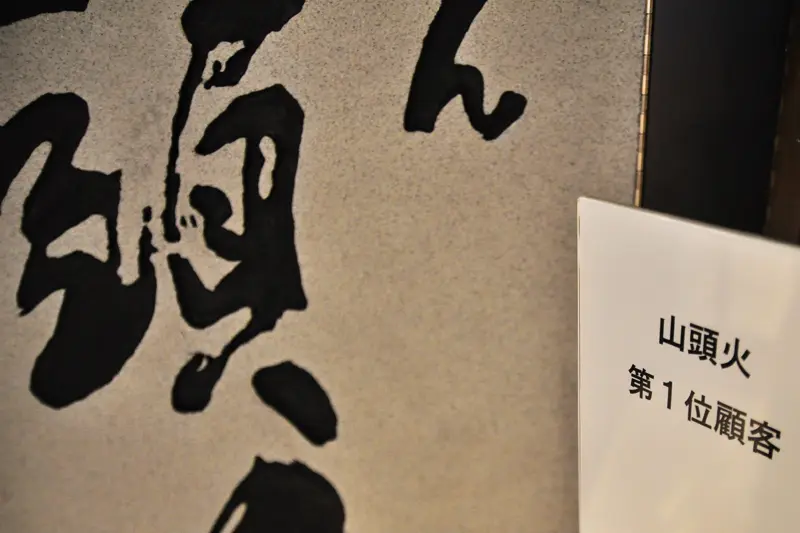 頭
ん
山頭火
第１位顧客